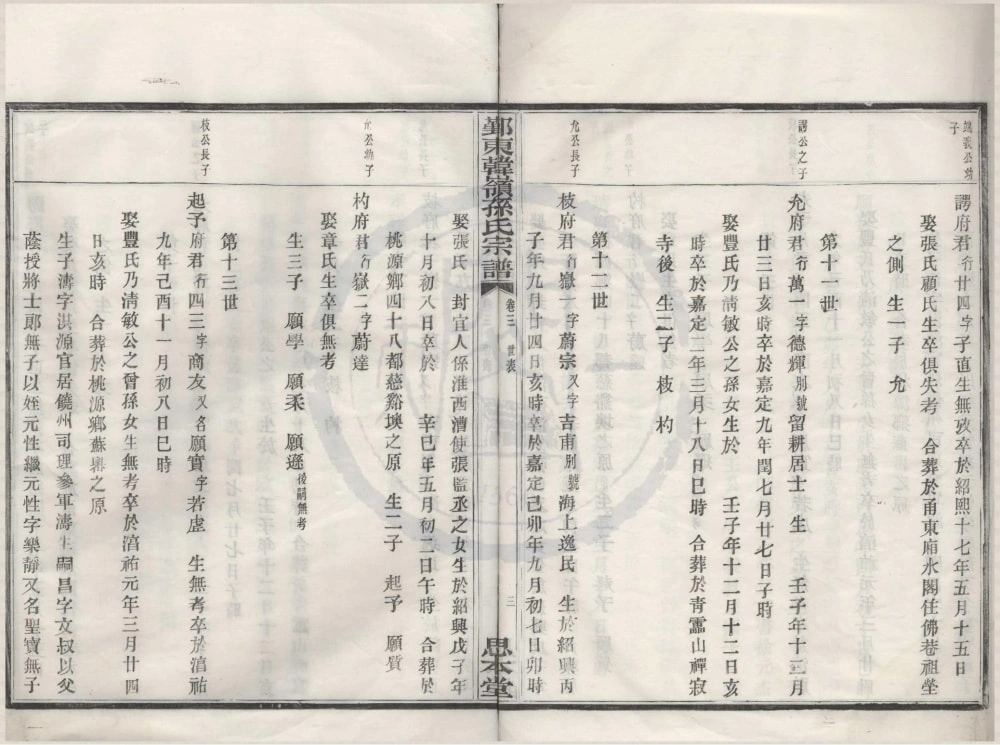 端裘公幼子
諤府君行廿四字子直生無攷卒於紹熙十七年五月十五日
娶張氏顧氏生卒俱失考 合葬於甬東廂水閣住佛巷祖塋
之側 生一子 允
第十一世
諤公之子
允府君行萬一字德輝別號留耕居士 生 壬子年十三月
廿三日亥時卒於嘉定九年閏七月廿七日子時
娶豐氏乃清敏公之孫女生於 壬子年十二月十二日亥
時卒於嘉定二年三月十八日巳時 合葬於青靁山禪寂
寺後 生二子 枝 杓
第十二世
允公長子
枝府君行嶽一字蔚宗又字吉甫別號海上逸民 生於紹興丙
子年九月廿四日亥時卒於嘉定己卯年九月初七日卯時
鄞東韓嶺孫氏宗譜 卷三 世表 三 思本堂
娶張氏 封宜人係淮西漕使張監丞之女生於紹興戊子年
十月初八日卒於 辛巳年五月初二日午時 合葬於
桃源鄉四十八都慈谿墺之原 生二子 起予 願質
允公幼子
杓府君行嶽二字蔚達
娶章氏生卒俱無考
生三子 願學 願柔 願遜後嗣無考
第十三世
枝公長子
起予府君行四三字商友又名願實字若虛 生無考卒於淯祐
九年己酉十一月初八日巳時
娶豐氏乃清敏公之曾孫女生無考卒於淯祐元年三月廿四
日亥時 合葬於桃源鄉蘇嶴之原
生子濤字淇源官居饒州司理參軍濤生嗣昌字文叔以父
蔭授將士郎無子以姪元性繼元性字樂靜又名聖寶無子